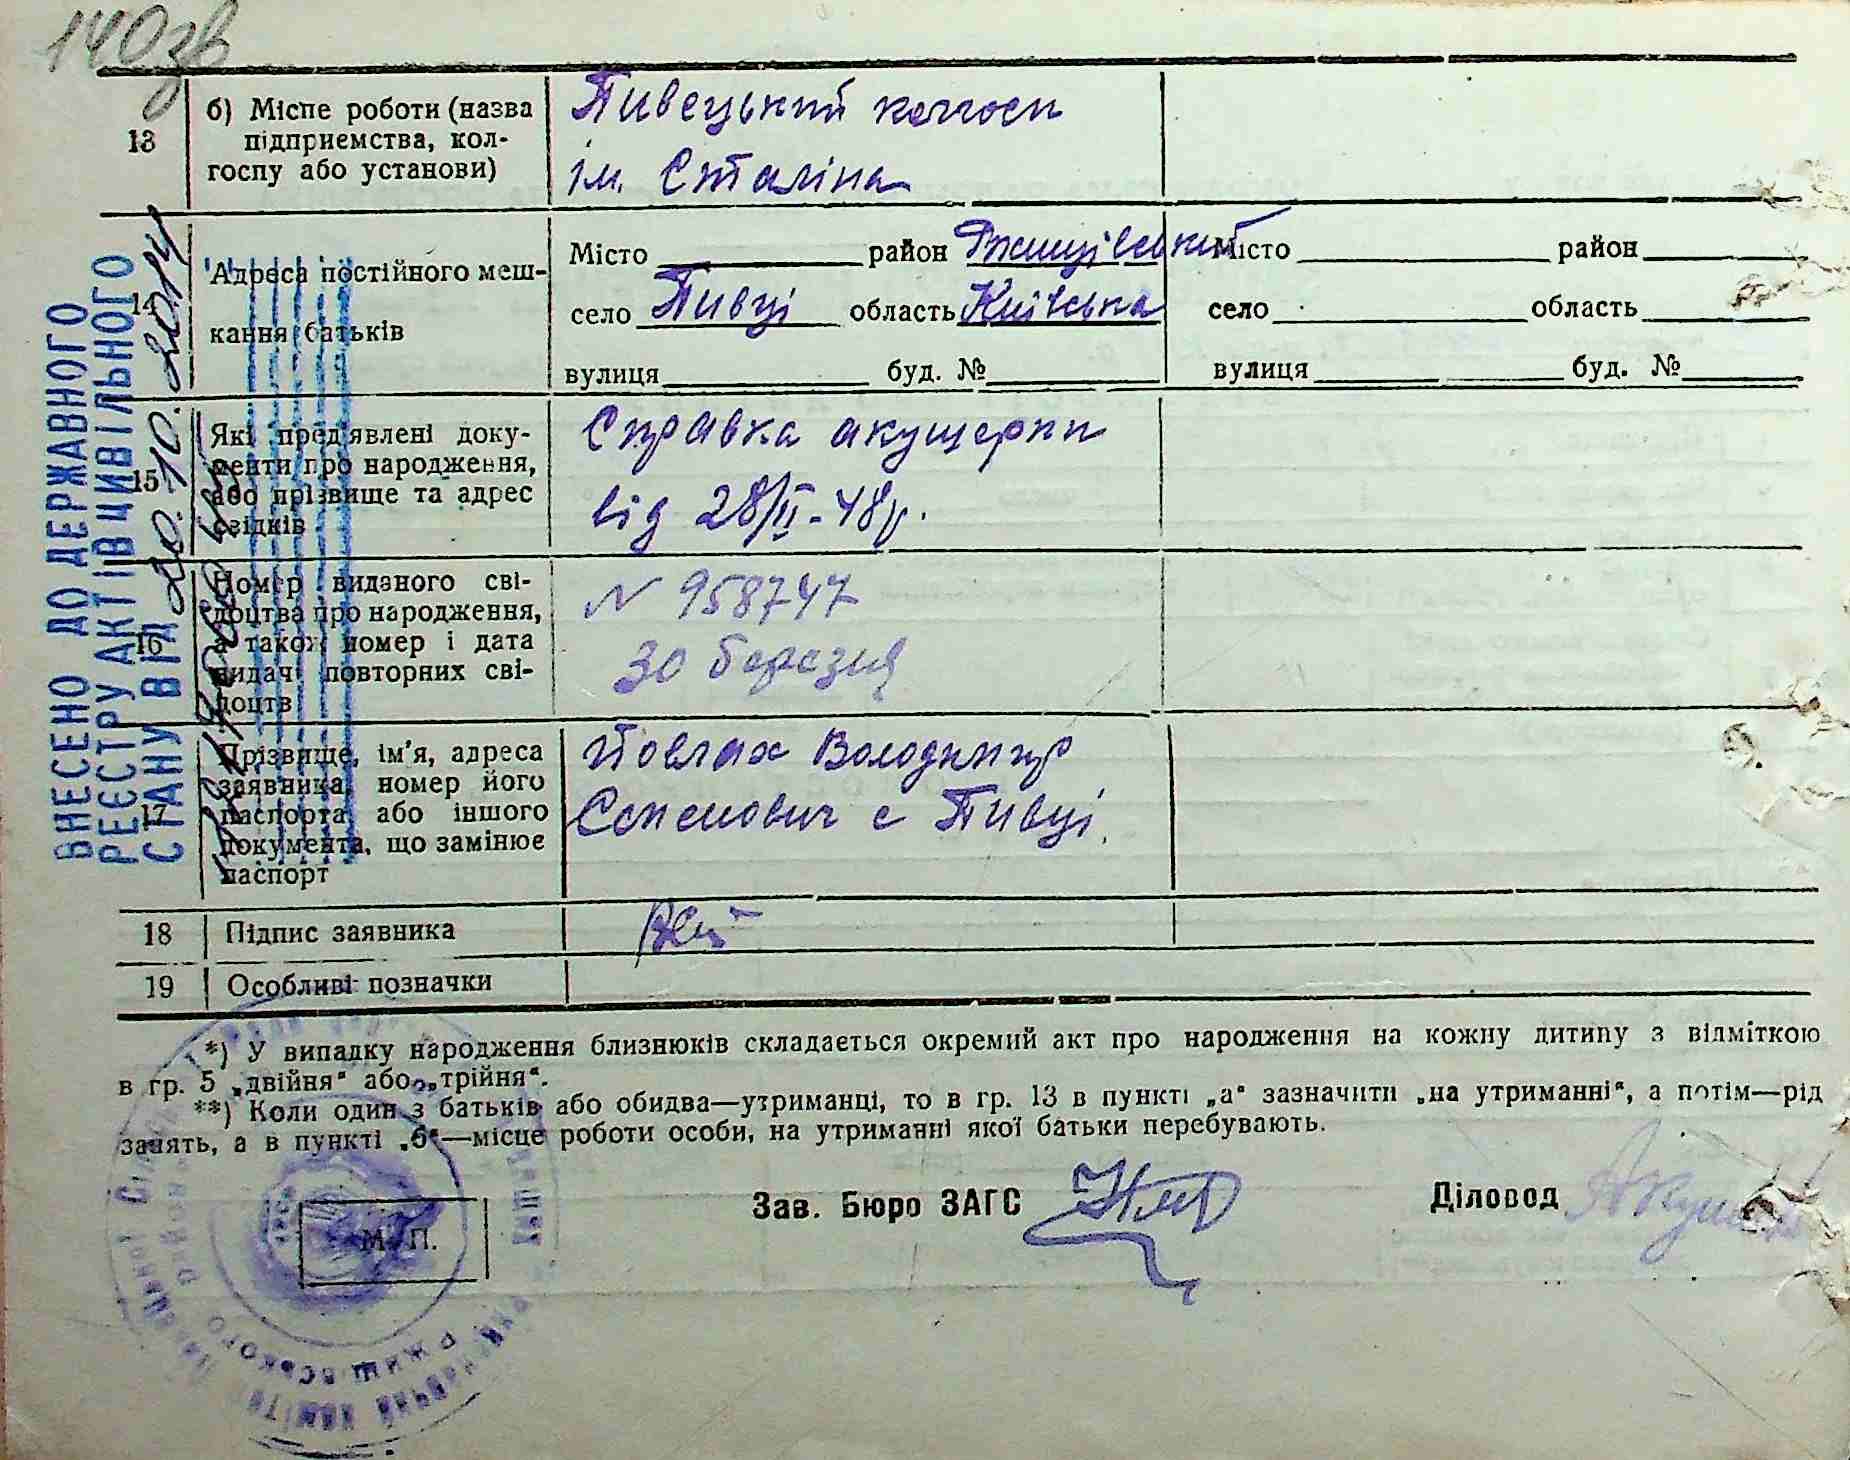 140зв
13
б) Місце роботи (назва
підприємства, кол-
госпу або установи)
Пивецький колгосп
ім. Сталіна
14
Адреса постійного меш-
кання батьків
Місто район Ржищівський
село Пивці область Київська
вулиця буд. №
Місто район
село область
вулиця буд. №
15
Які пред'явлені доку-
менти про народження,
або прізвище та адрес
свідків
Справка акушерки
від 28/II-48р.
16
Номер виданого сві-
доцтва про народження,
а також номер і дата
видачі повторних сві-
доцтв
N 958747
30 березня
17
Прізвище, ім'я, адреса
заявника, номер його
паспорта або іншого
документа, що замінює
паспорт
Володимир
Семенович с Пивці.
18 Підпис заявника
19 Особливі позначки
*) У випадку народження близнюків складається окремий акт про народження на кожну дитину з відміткою
в гр. 5 „двійня“ або „трійня“.
**) Коли один з батьків або обидва—утриманці, то в гр. 13 в пункті „а“ зазначити „на утриманні“, а потім—рід
занять, а в пункті „б“—місце роботи особи, на утриманні якої батьки перебувають.
М. П.
Зав. Бюро ЗАГС
Діловод
ВНЕСЕНО ДО ДЕРЖАВНОГО
РЕЄСТРУ АКТІВ ЦИВІЛЬНОГО
СТАНУ ВІД 20.10.2014